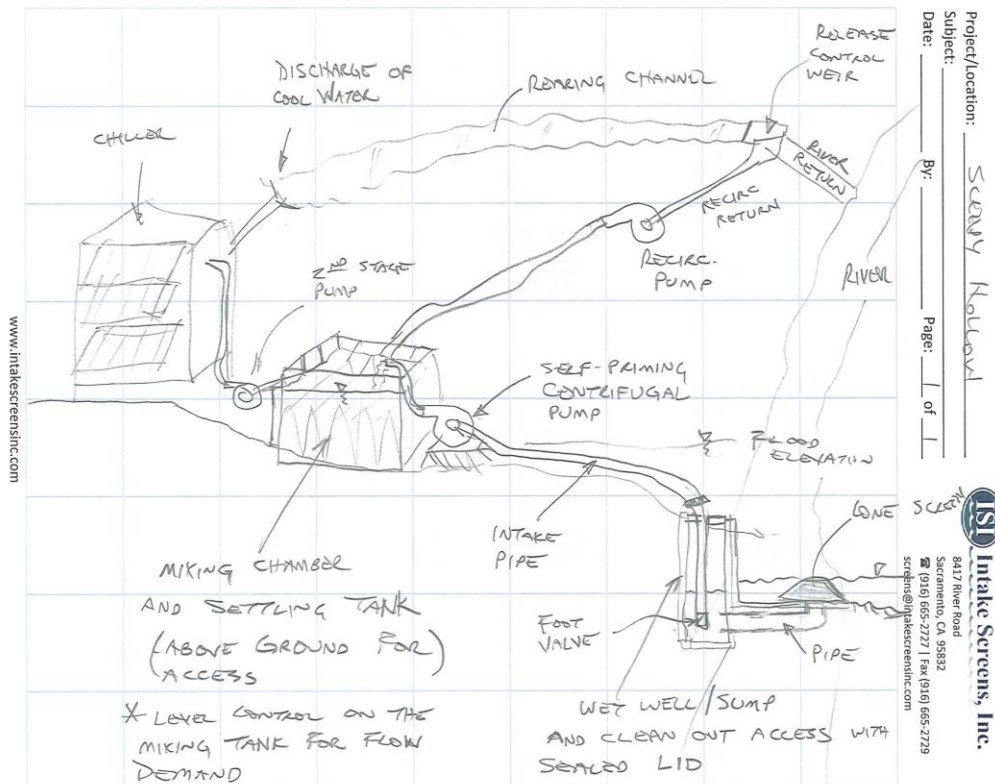 Project/Location: SCENY HOLLOW
Subject:
Date: By: Page: 1 of 1
ISI Intake Screens, Inc.
8417 River Road
Sacramento, CA 95832
☎ (916) 665-2727 | Fax (916) 665-2729
screens@intakescreensinc.com
www.intakescreensinc.com
RELEASE
CONTROL
WEIR
REARING CHANNEL
DISCHARGE OF
COOL WATER
CHILLER
RIVER
RETURN
RECIRC
RETURN
RECIRC.
PUMP
RIVER
2ND STAGE
PUMP
SELF-PRIMING
CENTRIFUGAL
PUMP
FLOOD
ELEVATION
CONE SCREEN
INTAKE
PIPE
MIXING CHAMBER
AND SETTLING TANK
(ABOVE GROUND FOR)
ACCESS
* LEVEL CONTROL ON THE
MIXING TANK FOR FLOW
DEMAND
FOOT
VALVE
PIPE
WET WELL/SUMP
AND CLEAN OUT ACCESS WITH
SEALED LID